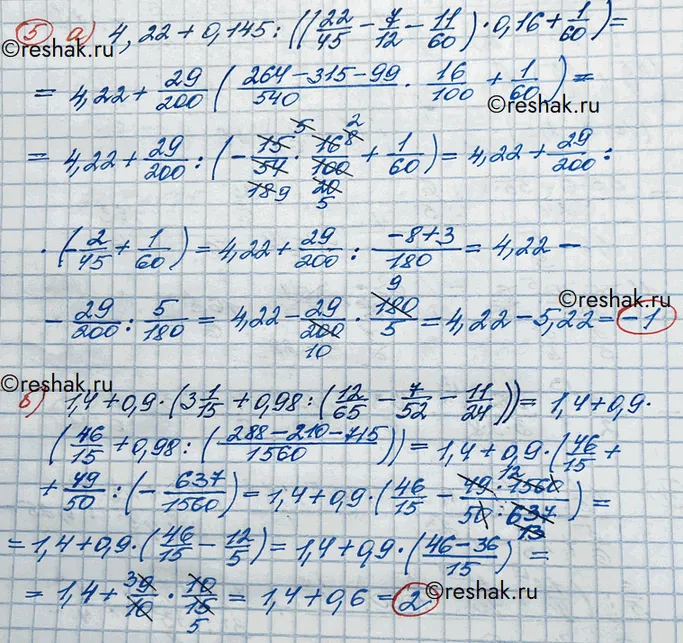 5 а) 4,22 + 0,145 : ((22/45 − 7/12 − 11/60) · 0,16 + 1/60) =
©reshak.ru
= 4,22 + 29/200 (264−315−99/540 · 16/100 + 1/60) =
©reshak.ru
= 4,22 + 29/200 : (− 15/54 · 16/100 + 1/60) = 4,22 + 29/200 :
5 2 8
18 9 20 5
· (− 2/45 + 1/60) = 4,22 + 29/200 : −8+3/180 = 4,22 −
©reshak.ru
− 29/200 : 5/180 = 4,22 − 29/200 · 180/5 = 4,22 − 5,22 = −1
9
10
©reshak.ru
б) 1,4 + 0,9 · (3 1/15 + 0,98 : (12/65 − 7/52 − 11/24)) = 1,4 + 0,9 ·
(46/15 + 0,98 : (288−210−715/1560)) = 1,4 + 0,9 · (46/15 +
+ 49/50 : (− 637/1560) = 1,4 + 0,9 · (46/15 − 49 · 1560/50 : 637) =
12
13
= 1,4 + 0,9 · (46/15 − 12/5) = 1,4 + 0,9 · (46−36/15) =
= 1,4 + 39/10 · 10/15 = 1,4 + 0,6 = 2
5
©reshak.ru